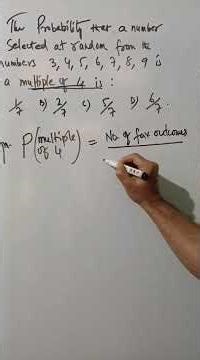 The Probability that a number
selected at random from the
numbers 3, 4, 5, 6, 7, 8, 9 is
a multiple of 4 is :
1/7 B) 2/7 C) 5/7 D) 6/7.
P(multiple of 4) = No of fav outcomes